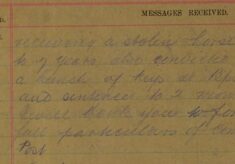 MESSAGES RECEIVED.
receiving a stolen horse
to 2 years also convicted
a bunch of keys at
and sentence to 2 mon
you to fur
full particulars of con
Post